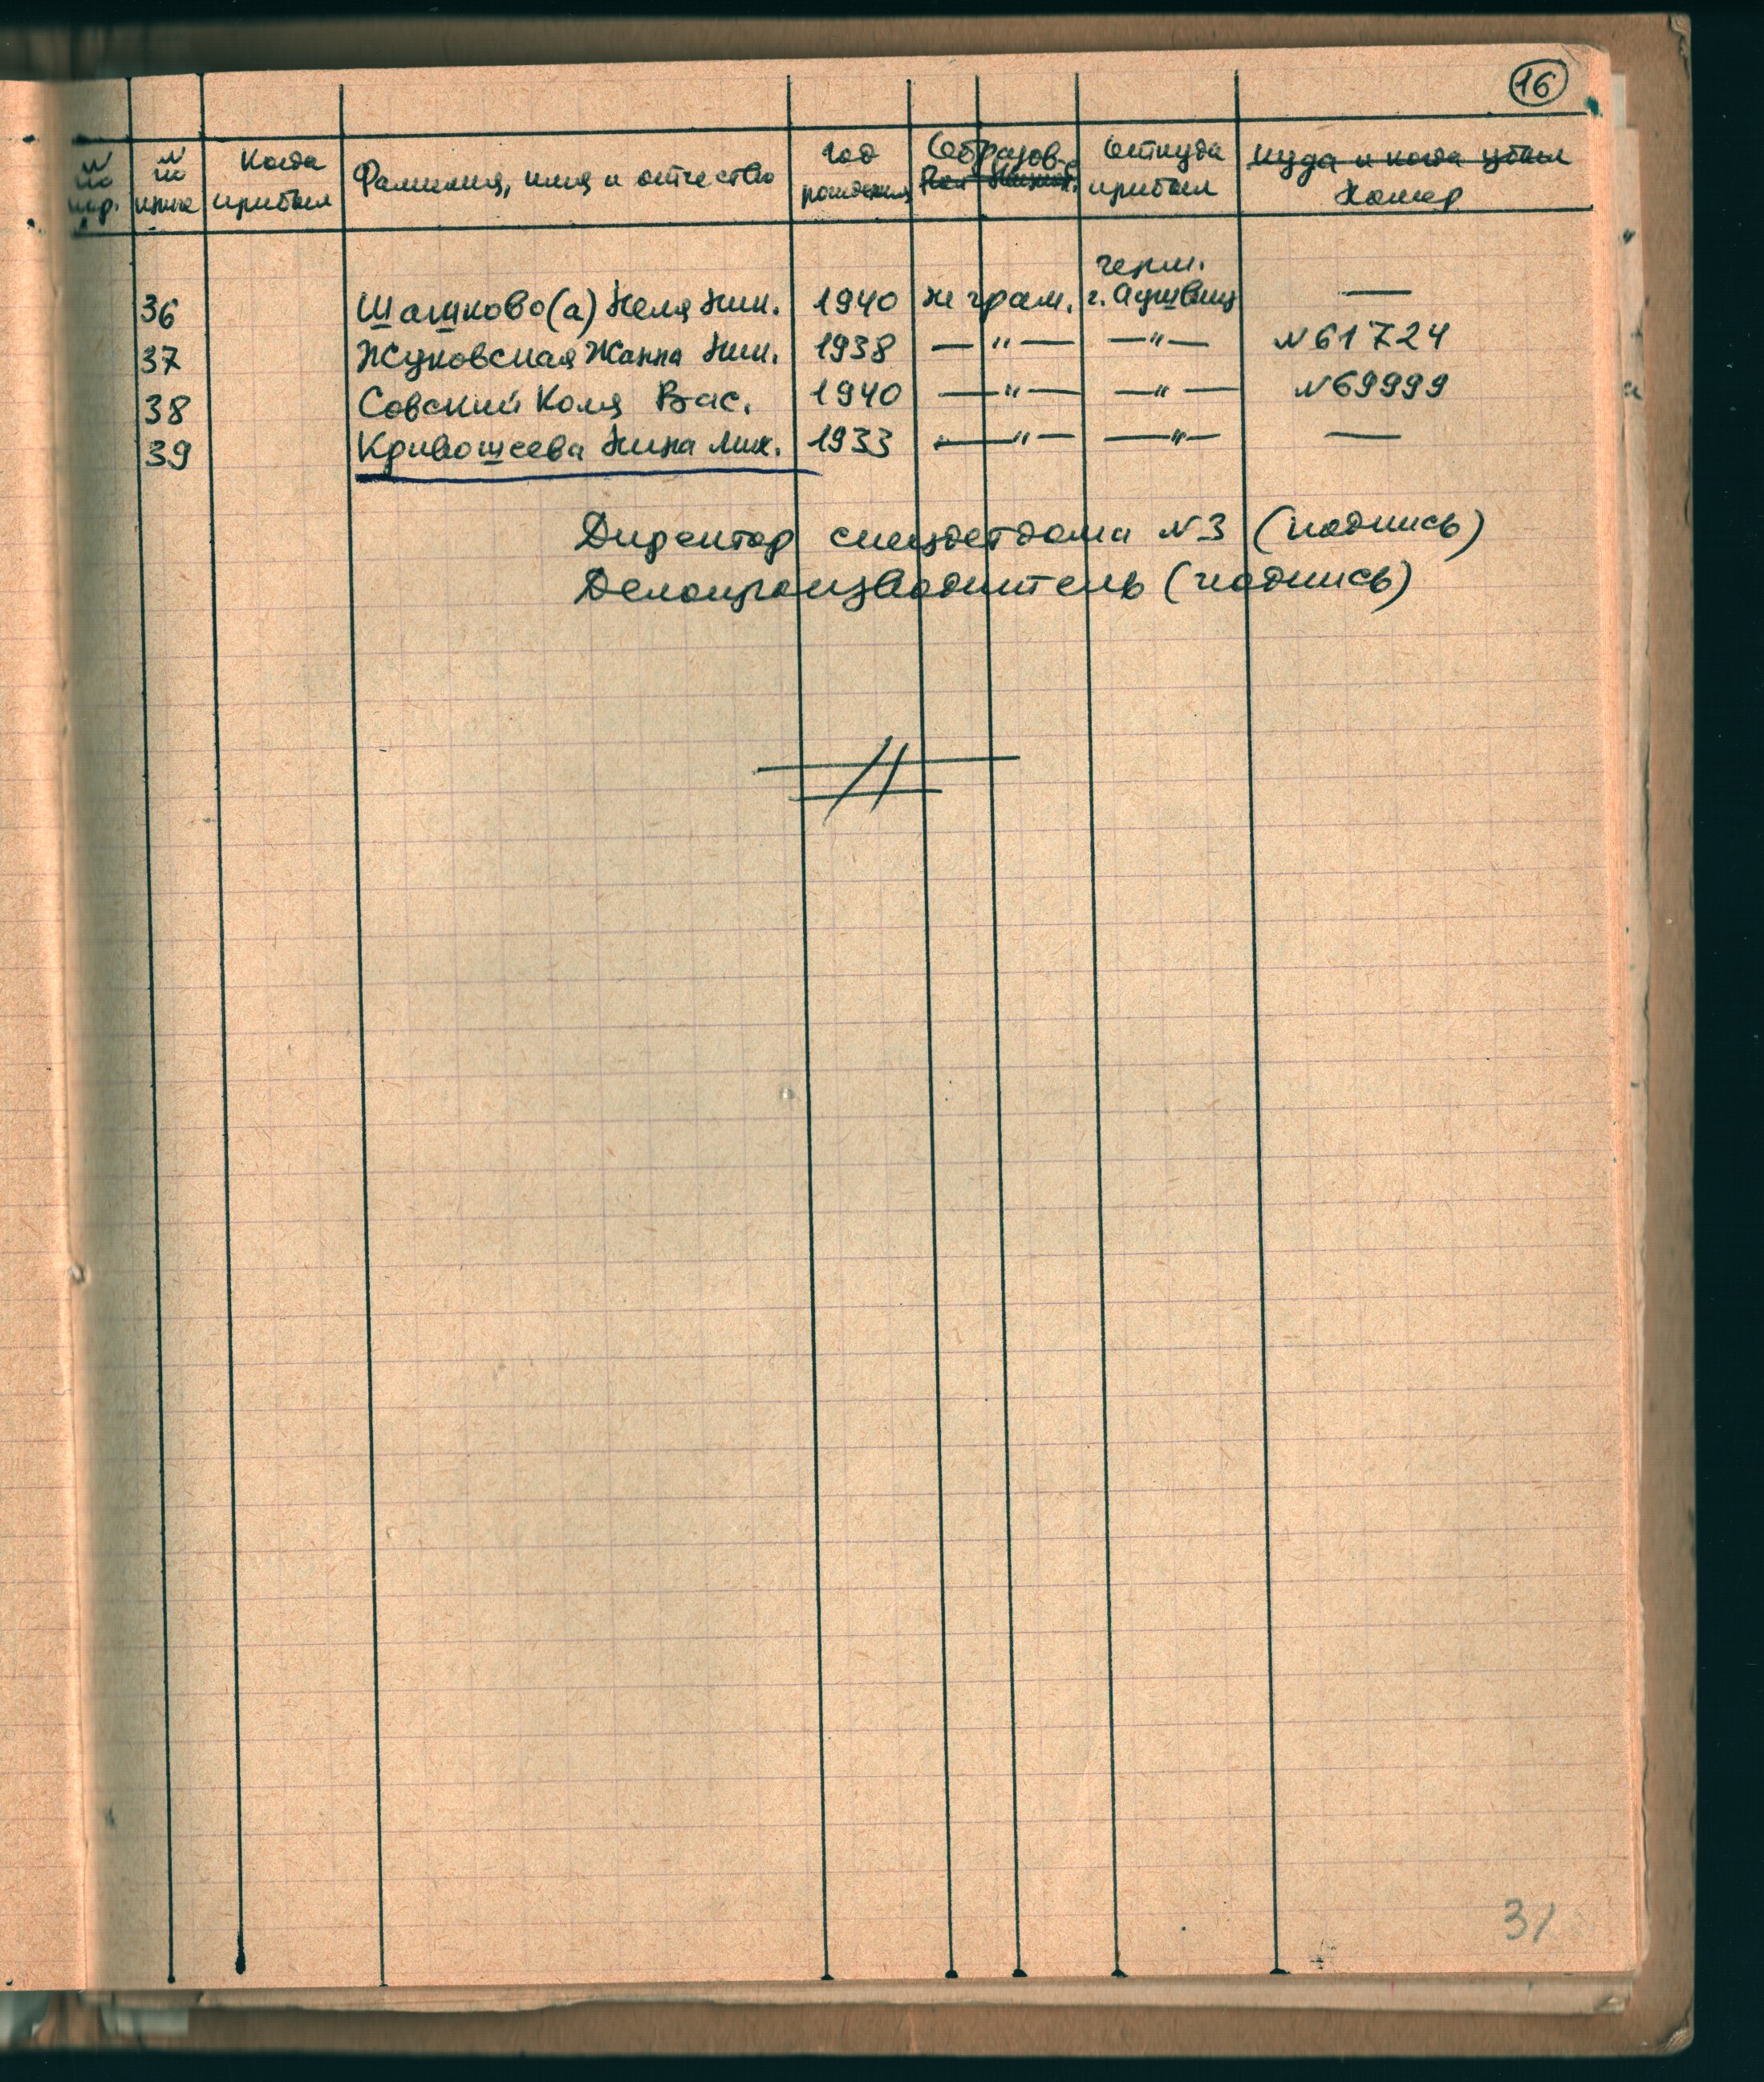 16
№ по пор. | № по книге | Когда прибыл | Фамилия, имя и отчество | год рождения | Образов. | Откуда прибыл | Номер
герм.
36 Шашково(а) Неля Ник. 1940 н грам. г. Аушвиц —
37 Жуковская Жанна Ник. 1938 — " — — " — №61724
38 Совский Коля Вас. 1940 — " — — " — №69999
39 Кривошеева Нина Мих. 1933 — " — — " — —
Директор спецдетдома №3 (подпись)
Делопроизводитель (подпись)
31